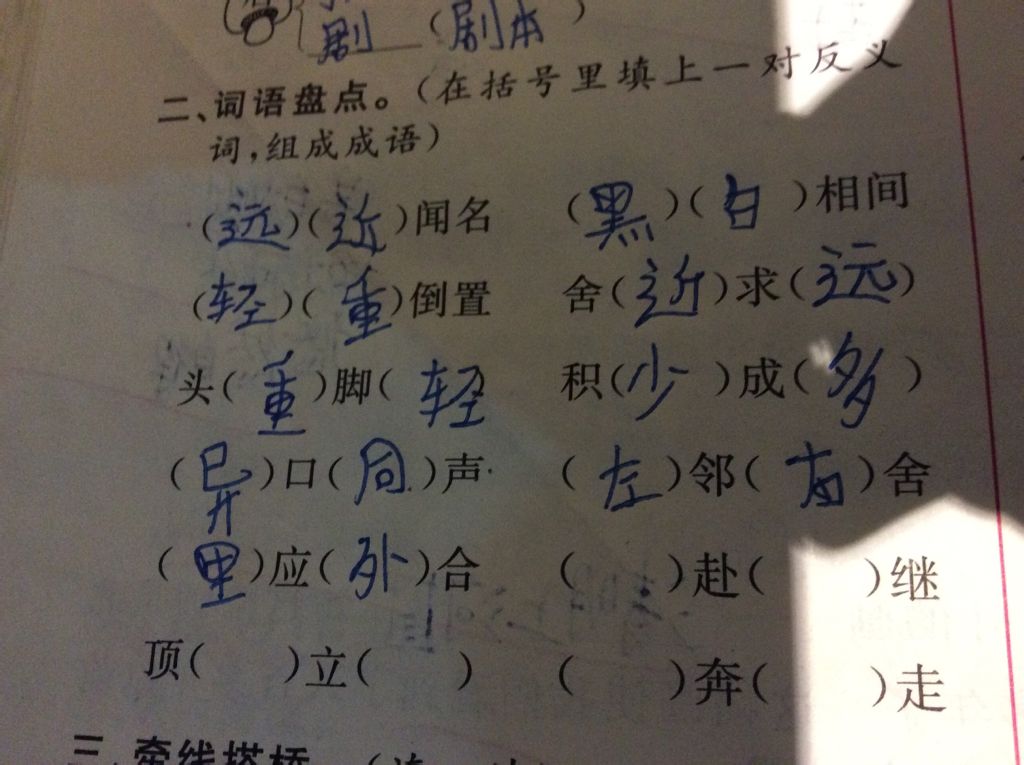 剧 (剧本)
二、词语盘点。(在括号里填上一对反义
词,组成成语)
(远)(近)闻名 (黑)(白)相间
(轻)(重)倒置 舍(近)求(远)
头(重)脚(轻 积(少)成(多)
(异)口(同)声 (左)邻(右)舍
(里)应(外)合 ( )赴( )继
顶( )立( ) ( )奔( )走
三、牵线搭桥。(连